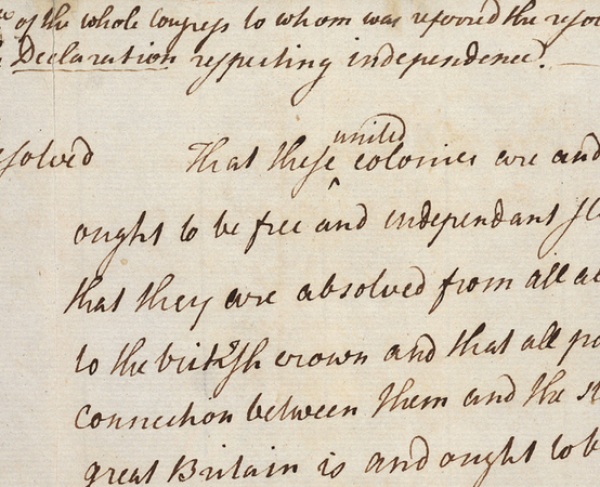 of the whole Congress to whom was referred the
Declaration respecting independence.
united
solved That these ^ colonies are and
ought to be free and independant
that they are absolved from all
to the british crown and that all
connection between them and the
great Britain is and ought to